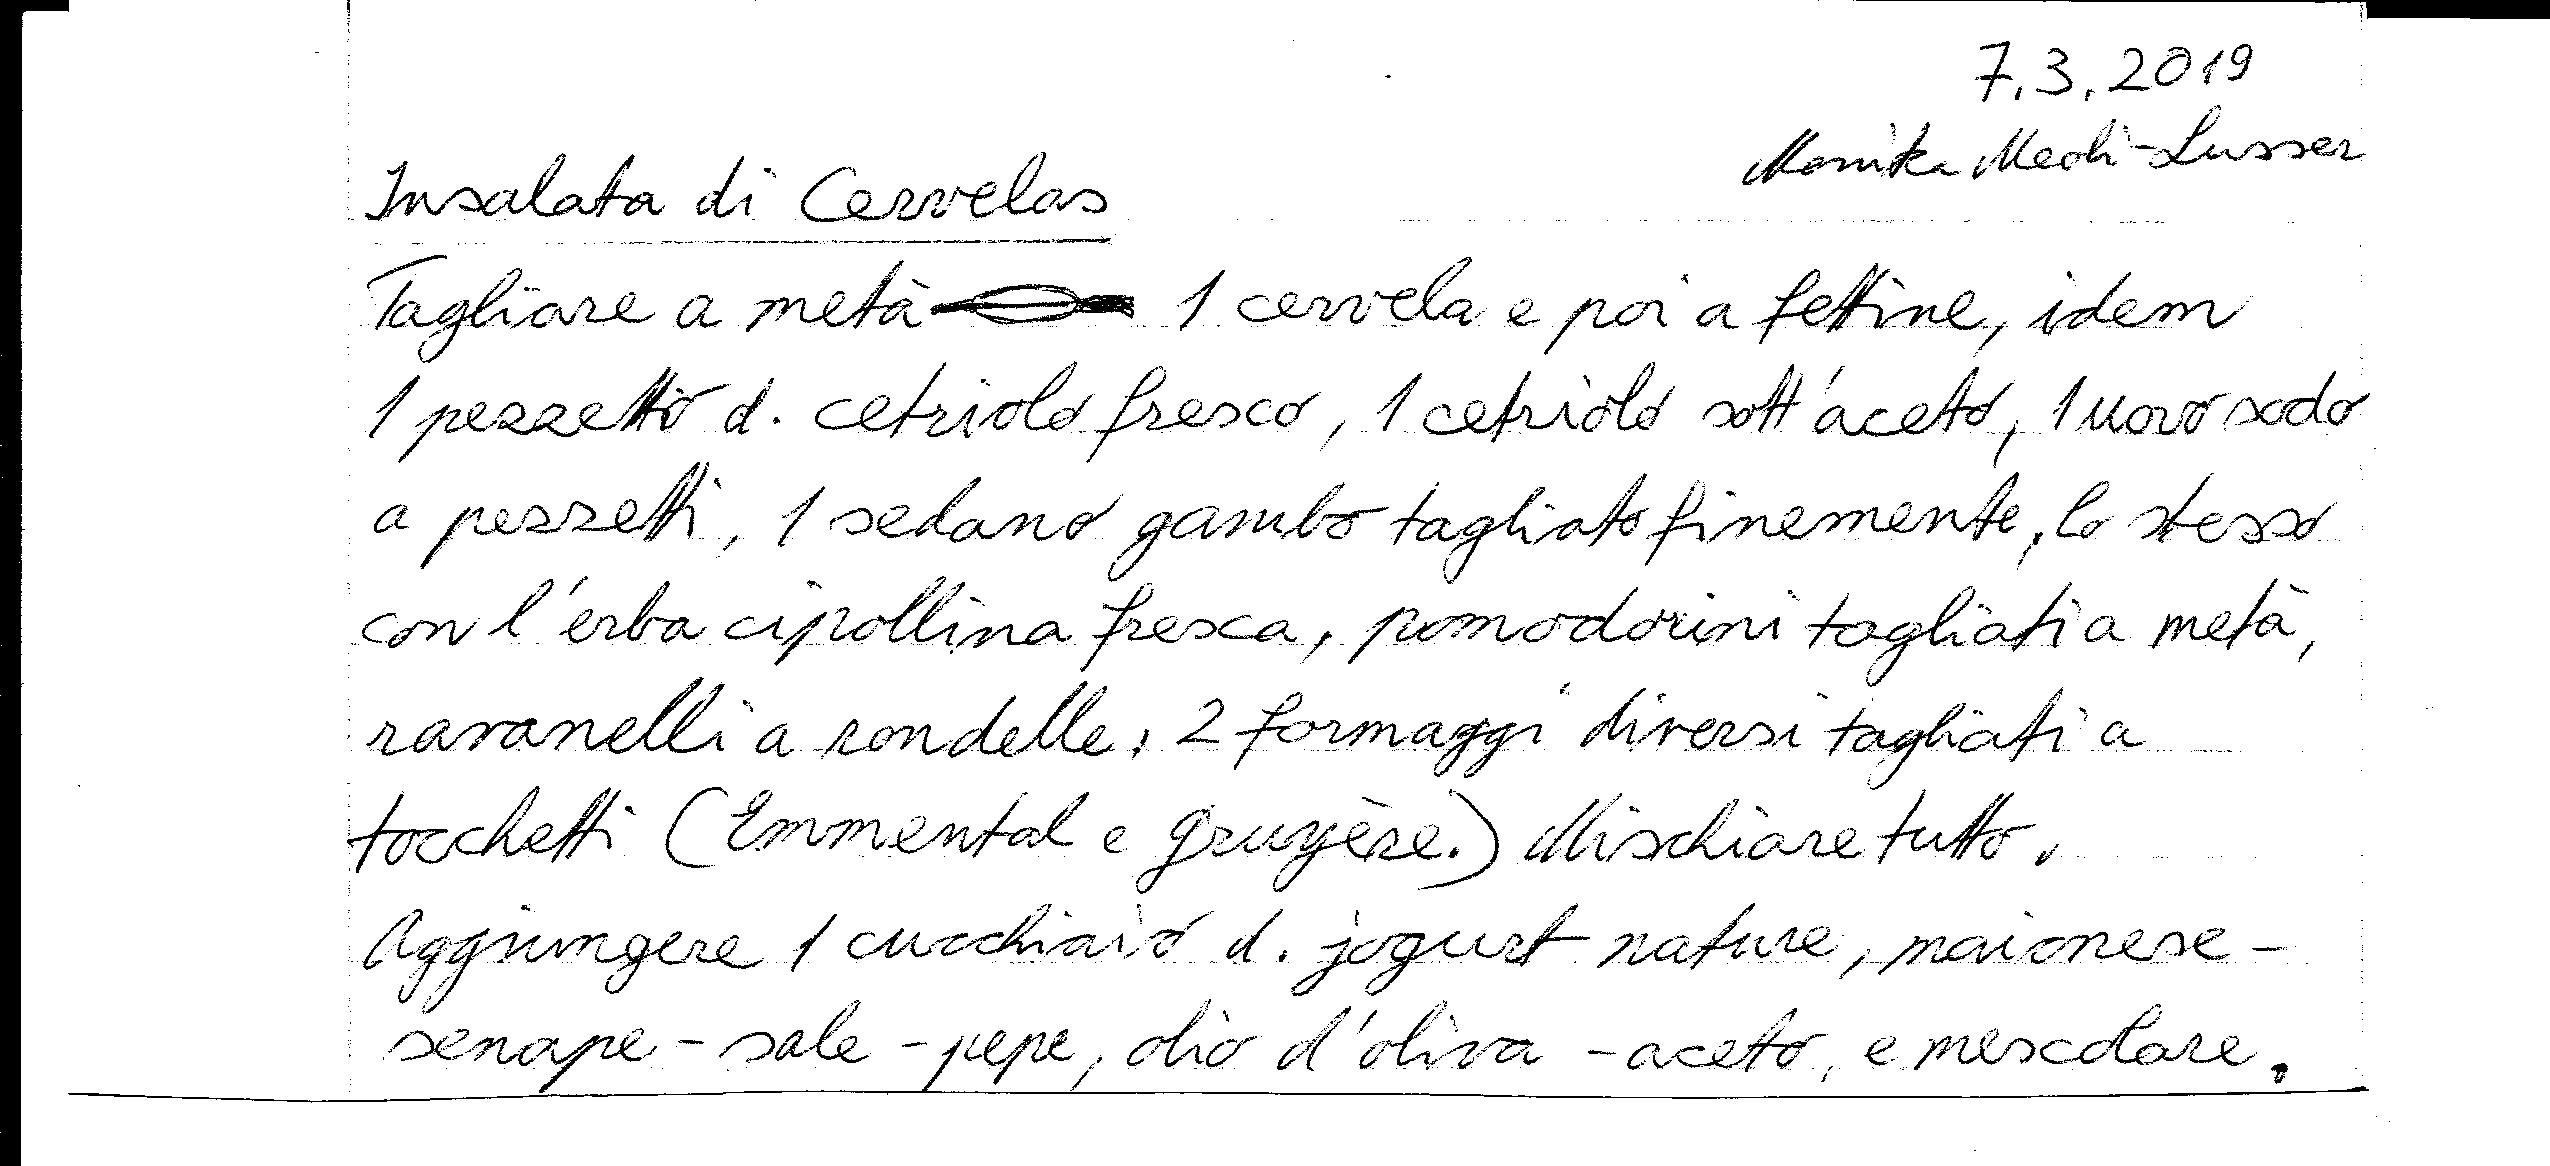 7.3.2019
Monika Medi-Lusser
Insalata di Cervelas
Tagliare a metà 1 cervela e poi a fettine, idem
1 pezzetto d. cetriolo fresco, 1 cetriolo sott'aceto, 1 uovo sodo
a pezzetti, 1 sedano gambo tagliato finemente, lo stesso
con l'erba cipollina fresca, pomodorini tagliati a metà,
ravanelli a rondelle, 2 formaggi diversi tagliati a
tocchetti (Emmental e gruyère.) Mischiare tutto.
Aggiungere 1 cucchiaio d. jogurt nature, maionese -
senape - sale - pepe, olio d'oliva - aceto, e mescolare.